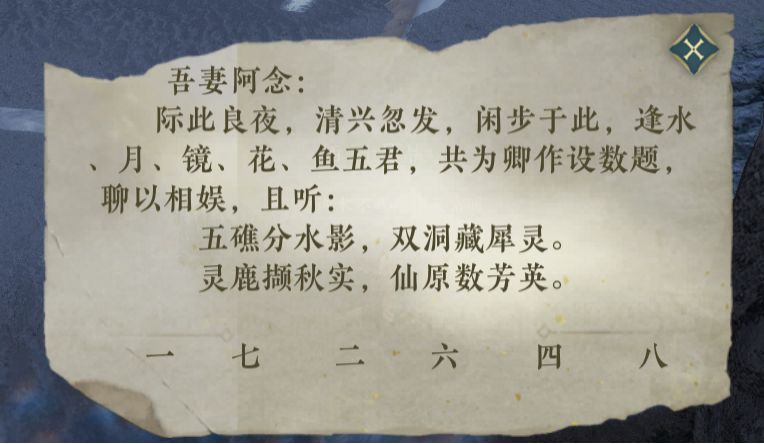 吾妻阿念：
际此良夜，清兴忽发，闲步于此，逢水
、月、镜、花、鱼五君，共为卿作设数题，
聊以相娱，且听：
五礁分水影，双洞藏犀灵。
灵鹿撷秋实，仙原数芳英。
一 七 二 六 四 八